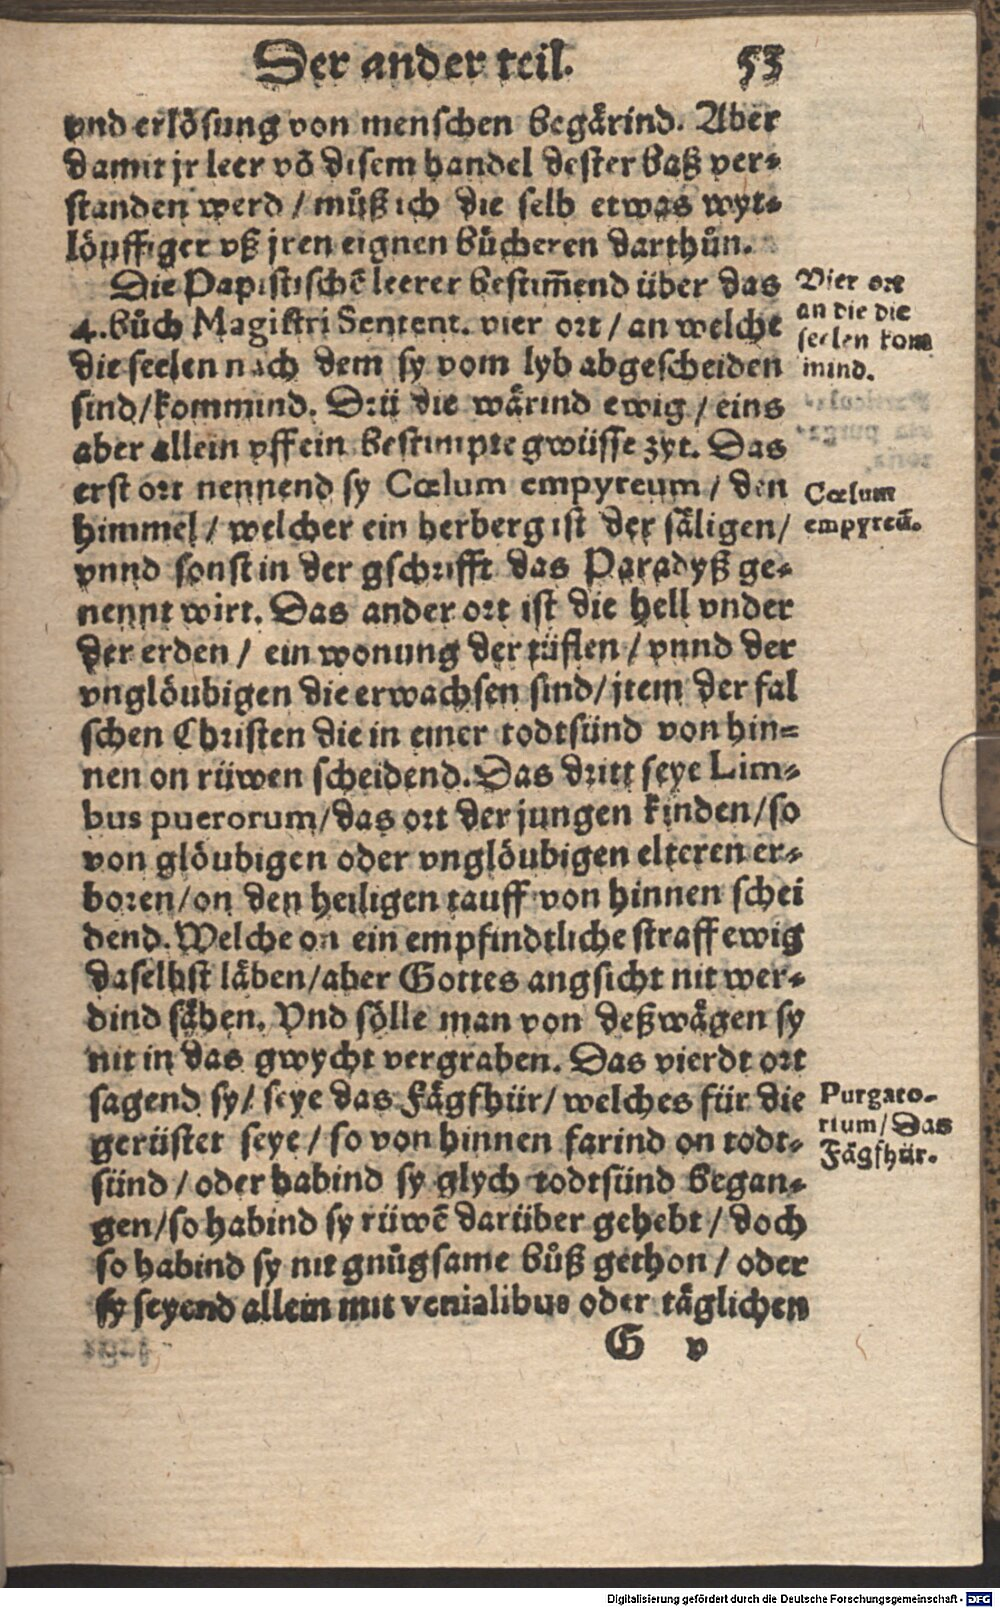 Der ander teil. 53
vnd erlösung von menschen begärind. Aber
damit jr leer vō disem handel dester baß ver-
standen werd / můß ich die selb etwas wyt-
löuffiger vß jren eignen bůcheren darthůn.
Die Papistischē leerer bestim̄end über das
4. bůch Magistri Sentent. vier ort / an welche
die seelen nach dem sy vom lyb abgescheiden
sind / kommind. Drü die wärind ewig / eins
aber allein vff ein bestimpte gwüsse zyt. Das
erst ort nennend sy Cœlum empyreum / den
himmel / welcher ein herberg ist der säligen /
vnnd sonst in der gschrifft das Paradyß ge-
nennt wirt. Das ander ort ist die hell vnder
der erden / ein wonung der tüflen / vnnd der
vnglöubigen die erwachsen sind / item der fal
schen Christen die in einer todtsünd von hin-
nen on rüwen scheidend. Das dritt seye Lim-
bus puerorum / das ort der jungen kinden / so
von glöubigen oder vnglöubigen elteren er-
boren / on den heiligen tauff von hinnen schei
dend. Welche on ein empfindtliche straff ewig
daselbst läben / aber Gottes angsicht nit wer-
dind sähen. Vnd sölle man von deßwägen sy
nit in das gwycht vergraben. Das vierdt ort
sagend sy / seye das Fägfhür / welches für die
gerüstet seye / so von hinnen farind on todt-
sünd / oder habind sy glych todtsünd began-
gen / so habind sy rüwē darüber gehebt / doch
so habind sy nit gnůgsame bůß gethon / oder
sy seyend allein mit venialibus oder täglichen
G v
Vier ort
an die die
seelen kom
mind.
Cœlum
empyreū.
Purgato-
rium / Das
Fägfhür.
Digitalisierung gefördert durch die Deutsche Forschungsgemeinschaft - DFG